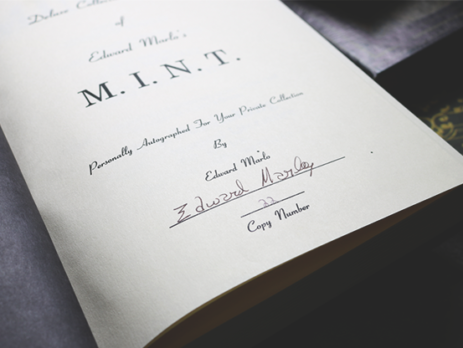 Deluxe
of
Edward Marlo's
M. I. N. T.
Personally Autographed For Your Private Collection
By
Edward Marlo
Edward
22
Copy Number